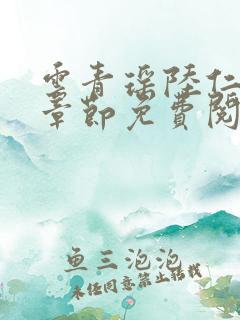 云青瑶陆仁
章节免费阅
鱼三泡泡
未经同意禁止转载